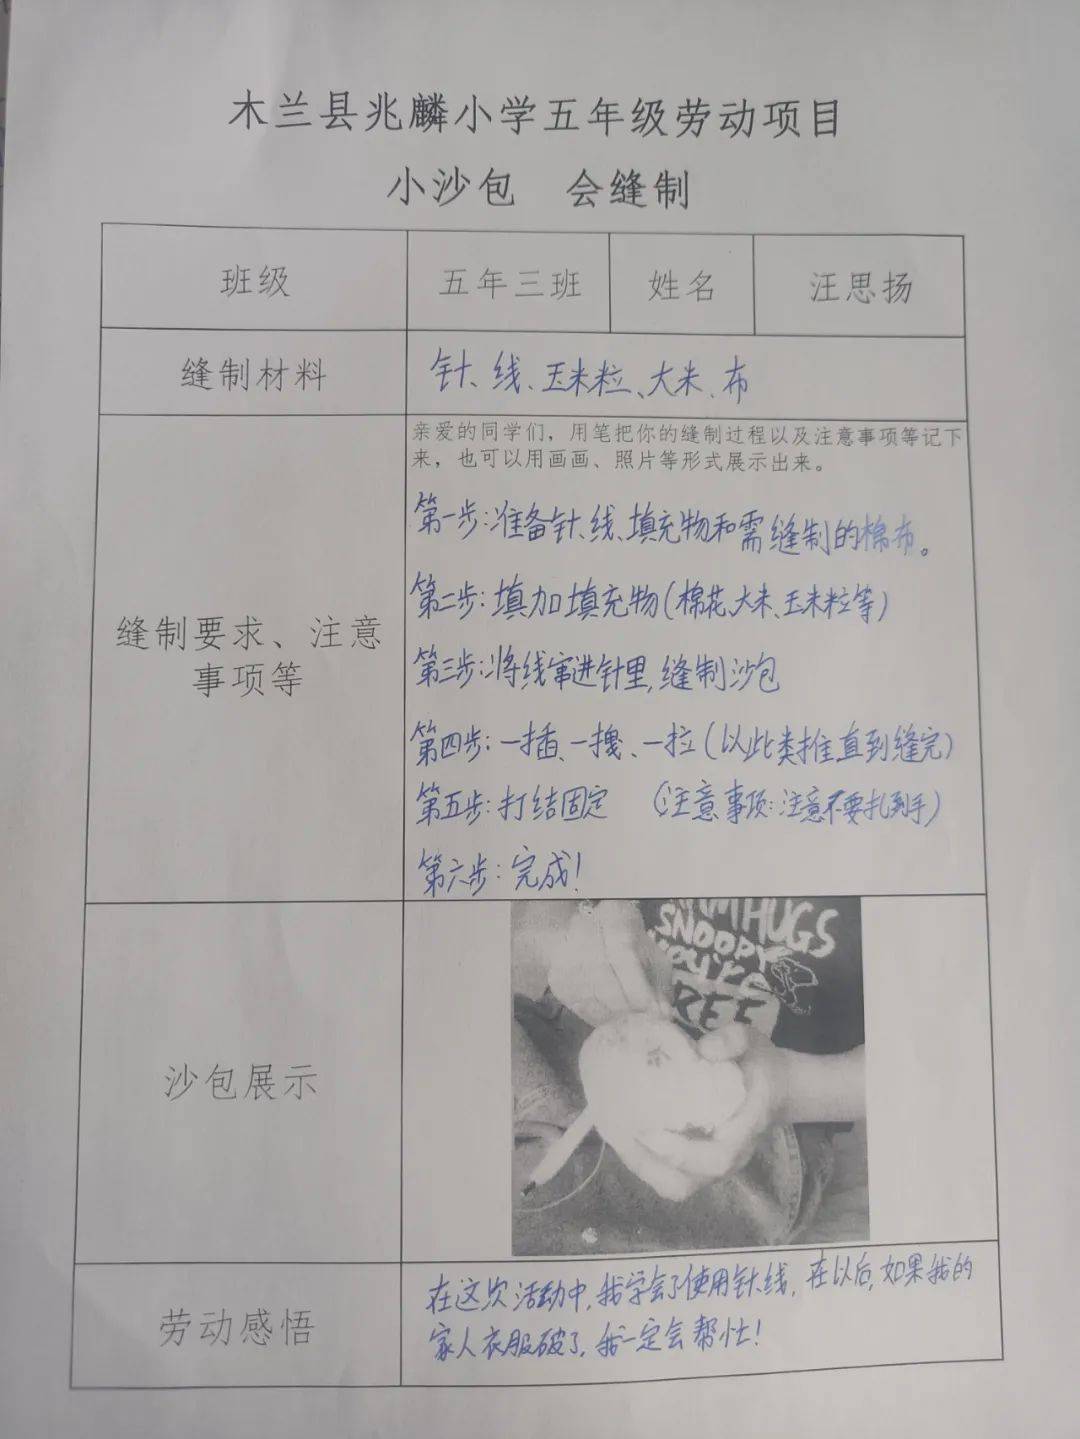 木兰县兆麟小学五年级劳动项目
小沙包 会缝制
班级 五年三班 姓名 汪思扬
缝制材料 针、线、玉米粒、大米、布
亲爱的同学们，用笔把你的缝制过程以及注意事项等记下
来，也可以用画画、照片等形式展示出来。
第一步:准备针、线、填充物和需缝制的棉布。
第二步:填加填充物(棉花、大米、玉米粒等)
缝制要求、注意
事项等
第三步:将线穿进针里,缝制沙包
第四步:一插、一拽、一拉(以此类推直到缝完)
第五步:打结固定 (注意事项:注意不要扎到手)
第六步:完成!
沙包展示
HUGS
SNOOPY
YOU'RE
REE
劳动感悟
在这次活动中,我学会了使用针线,在以后,如果我的
家人衣服破了,我一定会帮忙!